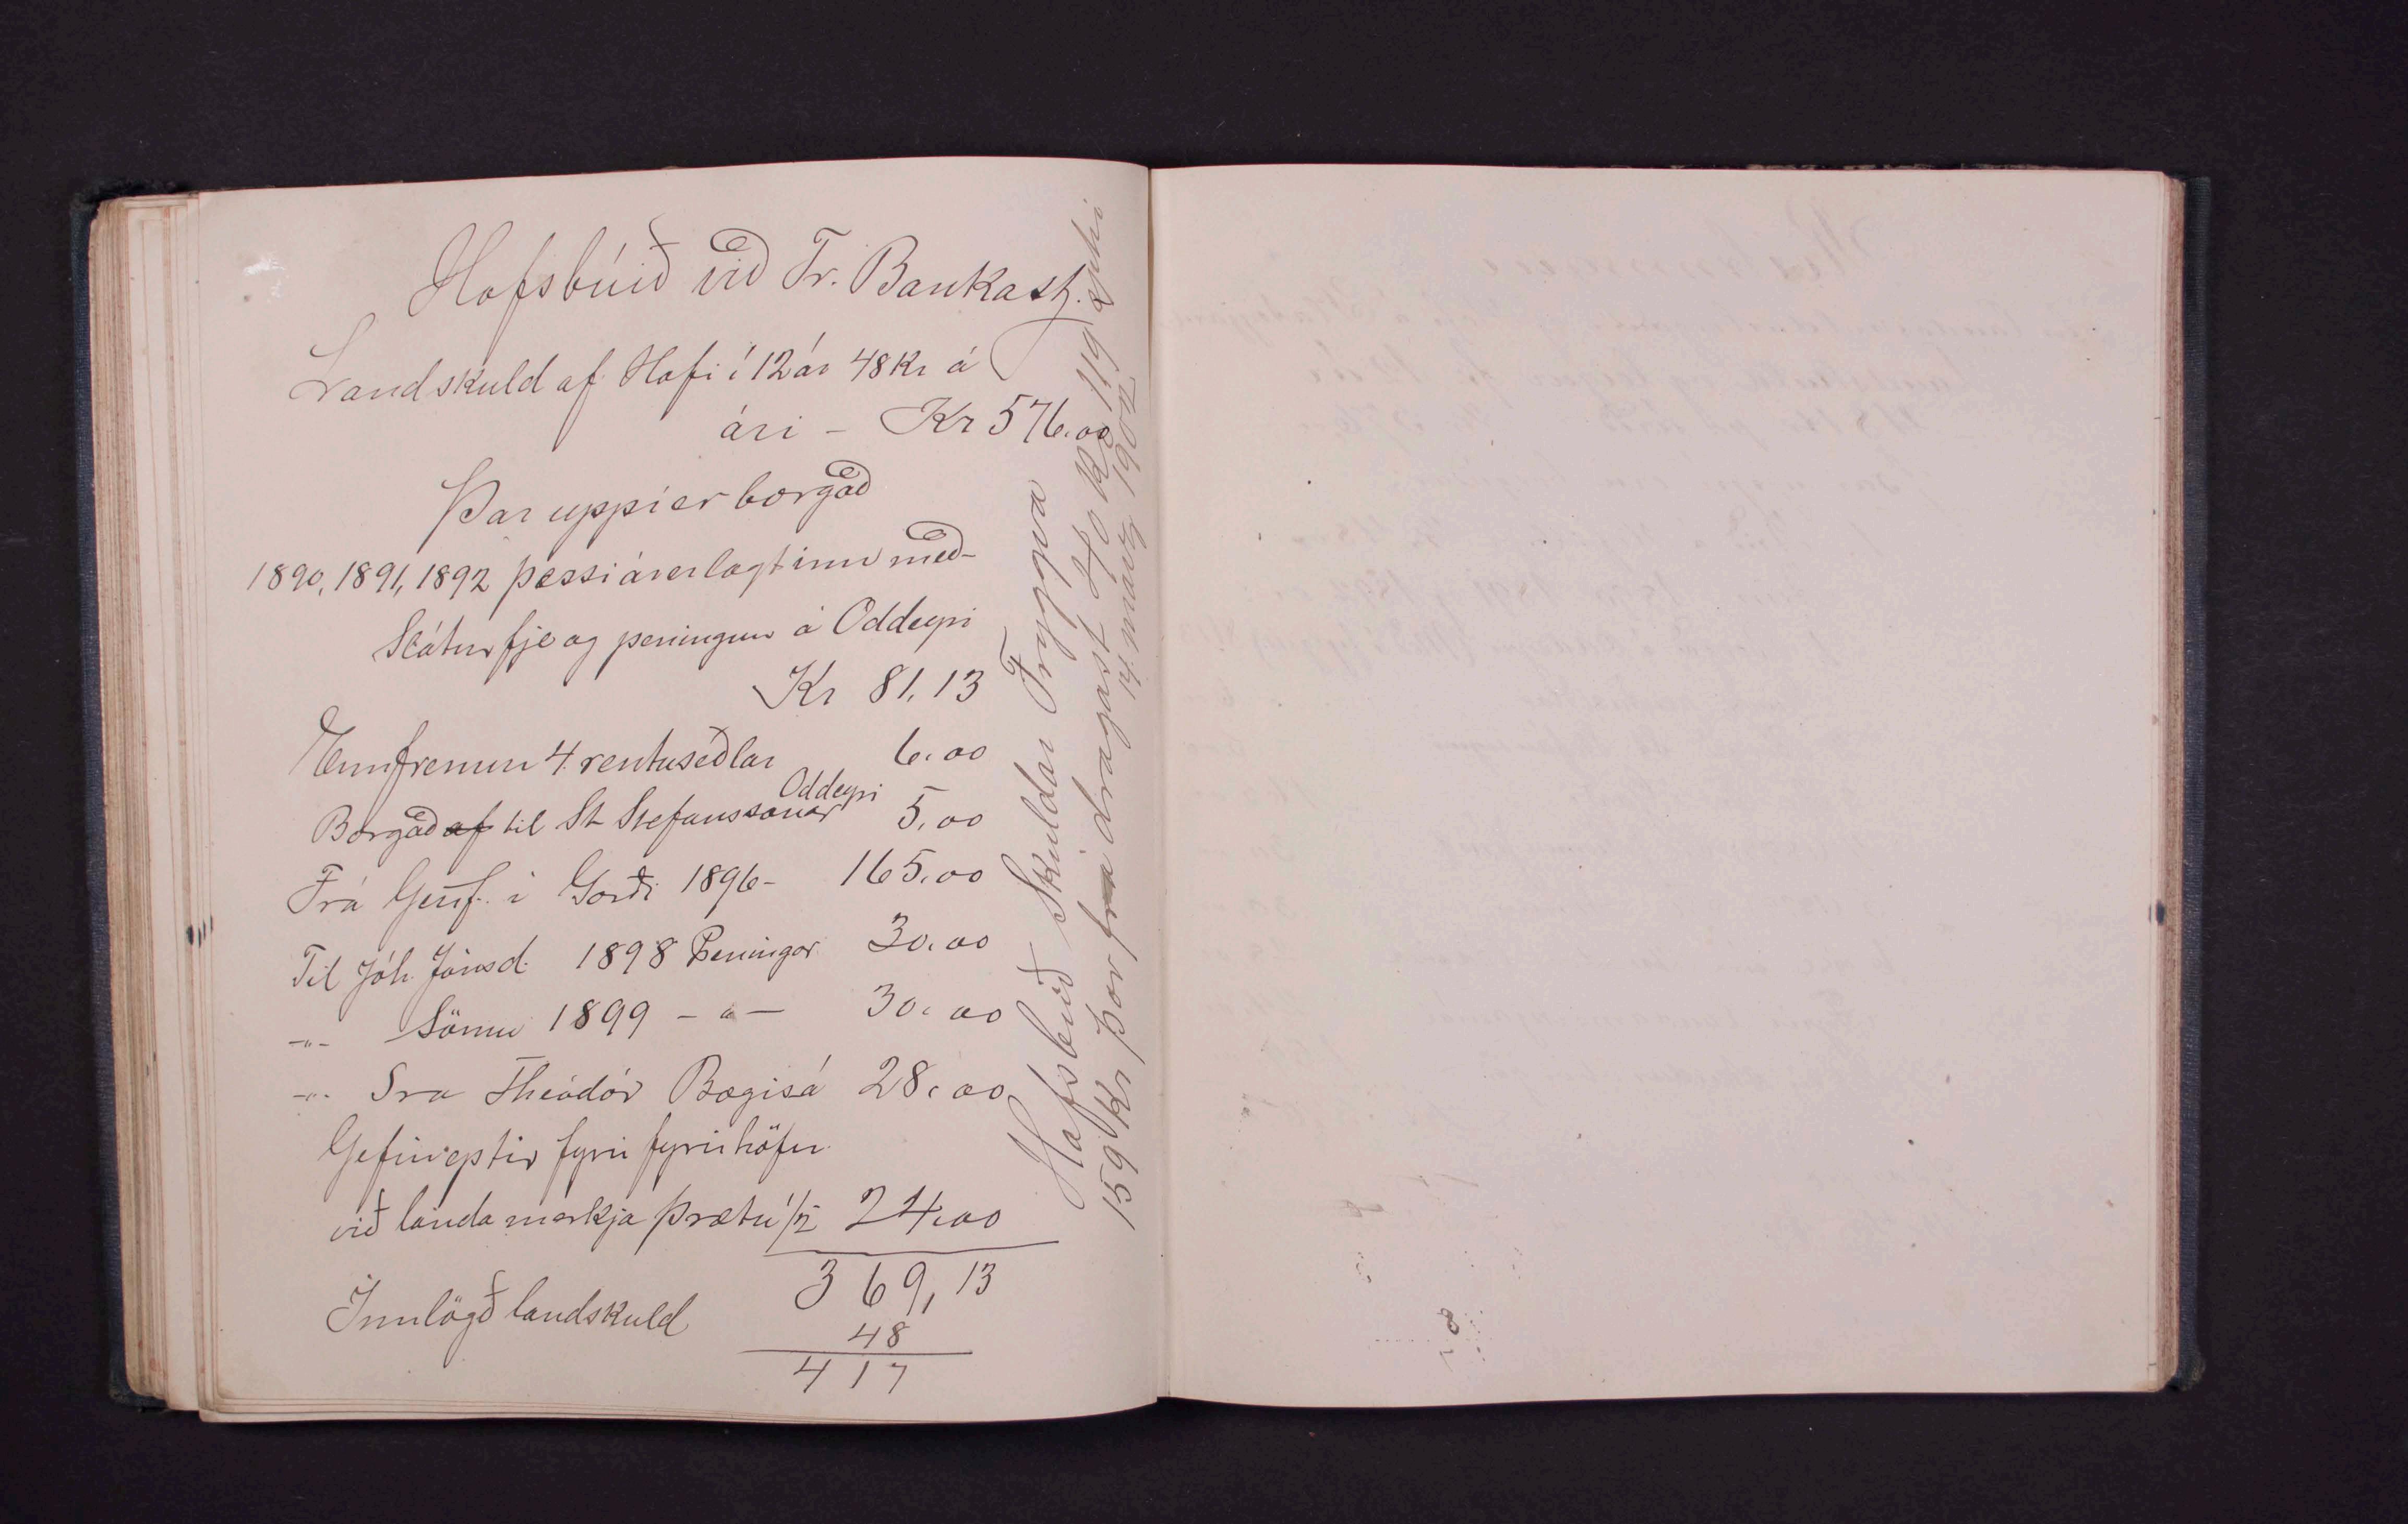 Hofsbúið við Tr. Bankastj.
Landskuld af Hofi í 12 ár 48 Kr á
ári - Kr 576.00
Þar uppí er borgað
1890, 1891, 1892 þessi ár er lagt inn með
Sláturfje og peningum á Oddeyri
Kr 81,13
Ennfremur 4 rentuseðlar 6.00
Oddeyri
Borgað af til St Stefanssonar 5,00
Frá í Gerði 1896- 165.00
Til Jóh. Jónsd. 1898 Peningar 30.00
-"- Sömu 1899 - " - 30.00
-"- Sra Theódór Bægisá 28.00
Gefin eptir fyrir fyrirhöfn
við landamerkja þrætu 1/2 24.00
369,13
Innlögð landskuld
48
417
Hofsbúið Skuldar Tryggva
159 Kr þar frá dragast 40 Kr 119 eptir
14. marz 1902